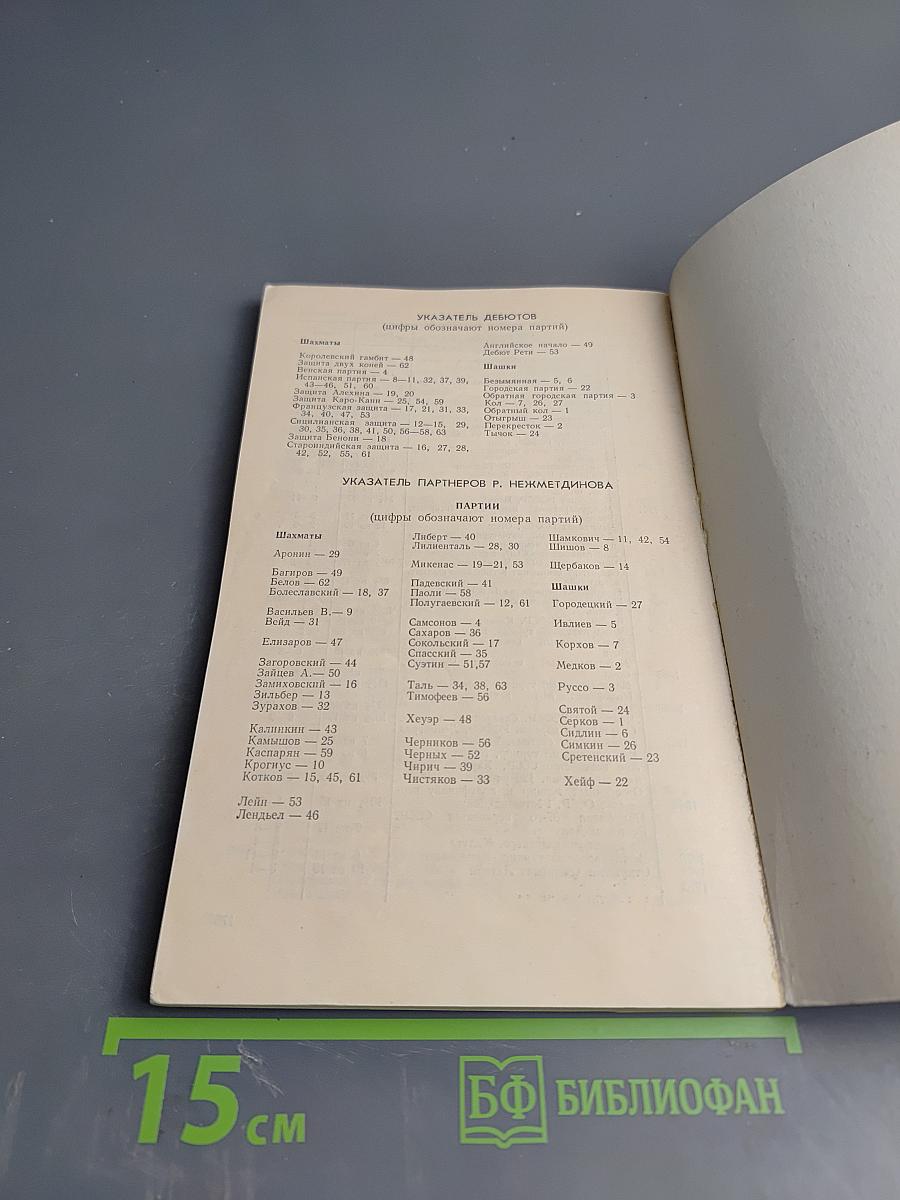 УКАЗАТЕЛЬ ДЕБЮТОВ
(цифры обозначают номера партий)
Шахматы
Королевский гамбит — 48
Защита двух коней — 62
Венская партия — 4
Испанская партия — 8—11, 32, 37, 39,
43—46, 51, 60
Защита Алехина — 19, 20
Защита Каро-Канн — 25, 54, 59
Французская защита — 17, 21, 31, 33,
34, 40, 47, 53
Сицилианская защита — 12—15, 29,
30, 35, 36, 38, 41, 50, 56—58, 63
Защита Бенони — 18
Староиндийская защита — 16, 27, 28,
42, 52, 55, 61
Английское начало — 49
Дебют Рети — 53
Шашки
Безымянная — 5, 6
Городская партия — 22
Обратная городская партия — 3
Кол — 7, 26, 27
Обратный кол — 1
Отыгрыш — 23
Перекресток — 2
Тычок — 24
УКАЗАТЕЛЬ ПАРТНЕРОВ Р. НЕЖМЕТДИНОВА
ПАРТИИ
(цифры обозначают номера партий)
Шахматы
Аронин — 29
Багиров — 49
Белов — 62
Болеславский — 18, 37
Васильев В.— 9
Вейд — 31
Елизаров — 47
Загоровский — 44
Зайцев А.— 50
Замиховский — 16
Зильбер — 13
Зурахов — 32
Калинкин — 43
Камышов — 25
Каспарян — 59
Крогиус — 10
Котков — 15, 45, 61
Лейн — 53
Лендьел — 46
Либерт — 40
Лилиенталь — 28, 30
Микенас — 19—21, 53
Падевский — 41
Паоли — 58
Полугаевский — 12, 61
Самсонов — 4
Сахаров — 36
Сокольский — 17
Спасский — 35
Суэтин — 51,57
Таль — 34, 38, 63
Тимофеев — 56
Хеуэр — 48
Черников — 56
Черных — 52
Чирич — 39
Чистяков — 33
Шамкович — 11, 42, 54
Шишов — 8
Щербаков — 14
Шашки
Городецкий — 27
Ивлиев — 5
Корхов — 7
Медков — 2
Руссо — 3
Святой — 24
Серков — 1
Сидлин — 6
Симкин — 26
Сретенский — 23
Хейф — 22
15 см
БФ БИБЛИОФАН